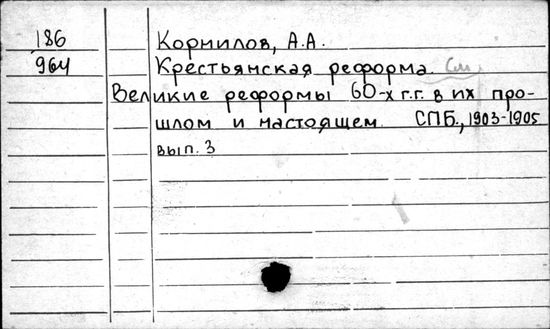 186 Корнилов, А.А.
964 Крестьянская реформа. См
Великие реформы 60-х г.г. в их про-
шлом и настоящем. СПБ., 1903-1905
вып. 3